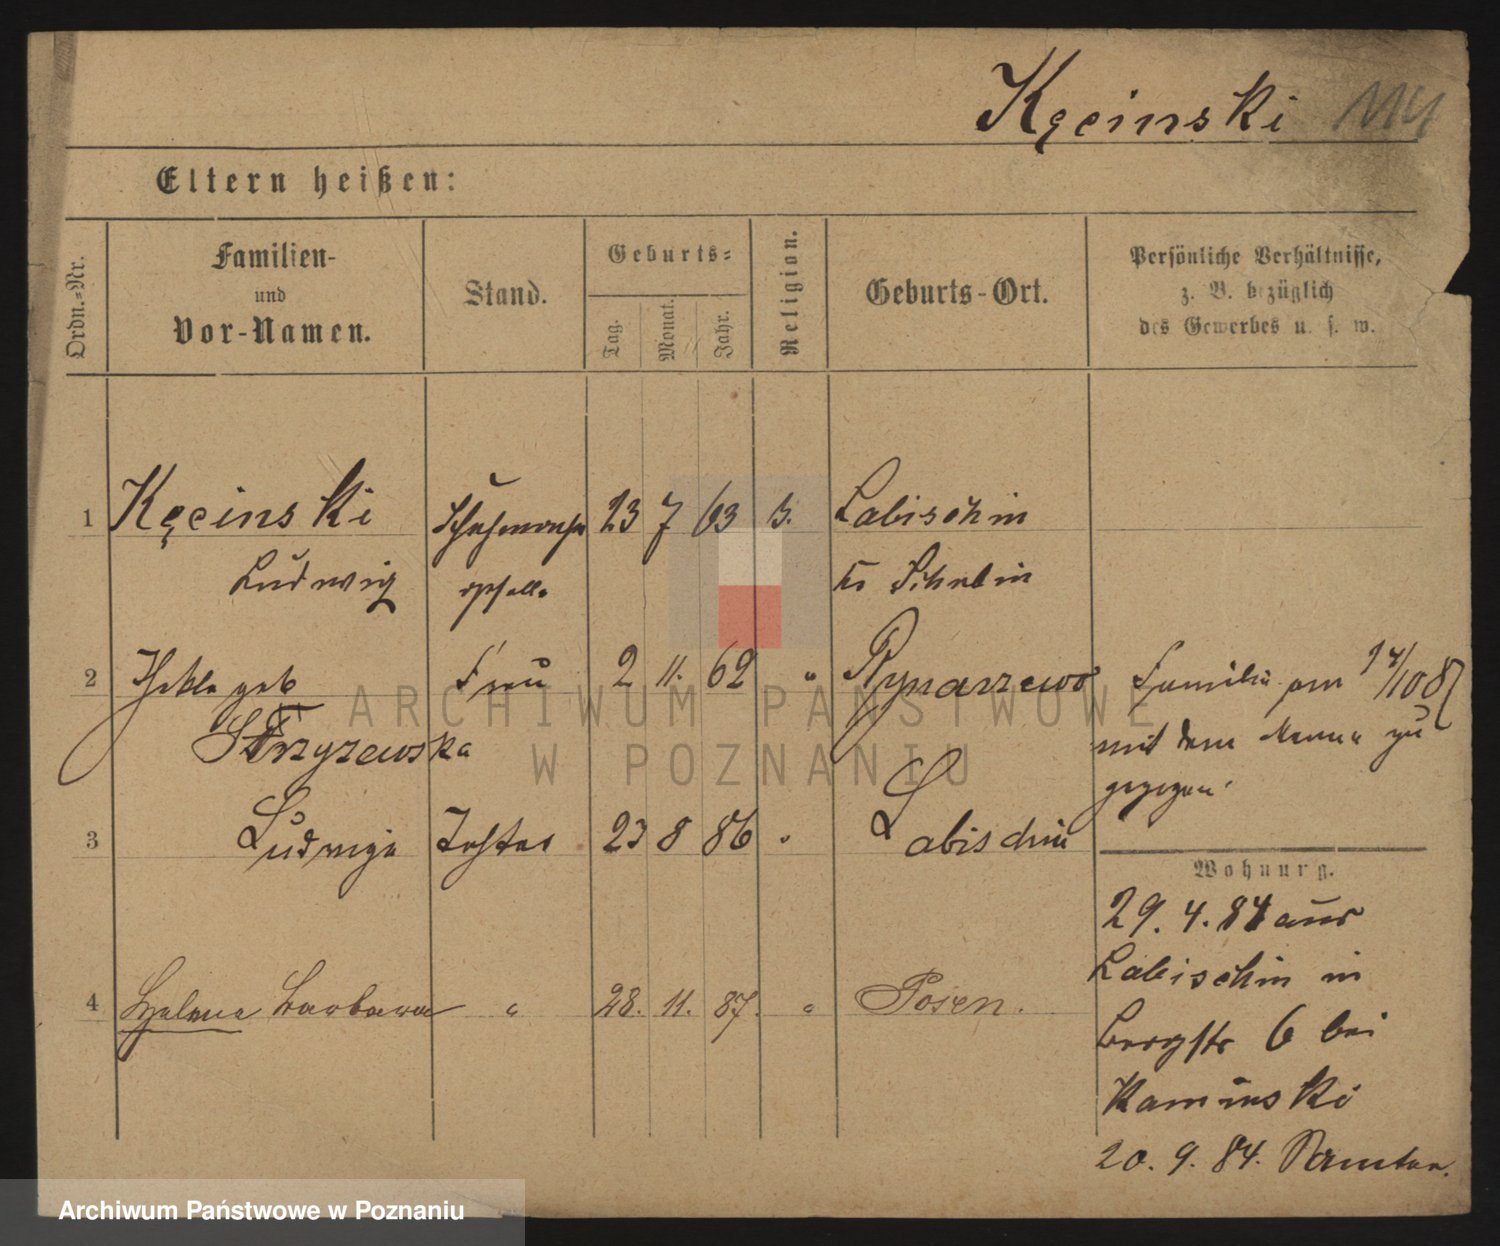 Kęcinski
Eltern heißen:
Ordn.=Nr.
Familien-
und
Vor-Namen.
Stand.
Geburts=
Tag.
Monat.
Jahr.
Religion.
Geburts-Ort.
Persönliche Verhältnisse,
z. B. bezüglich
des Gewerbes u. s. w.
1 Kęcinski 23 7 63 Labischin
Ludwig Schubin
2 Thekla geb Frau 2 11. 62 " Rynarzewo Familie am
mit dem Manne zu
Strzyzewska
gezogen.
3 Ludwiga Tochter 23 8 86 " Labischin
Wohnung.
29. 4. 84 aus
Labischin in
4 Helena Barbara " 28. 11. 87. " Posen.
Bergstr 6 bei
Kaminski
20. 9. 84. Samter.
ARCHIWUM PAŃSTWOWE
W POZNANIU
Archiwum Państwowe w Poznaniu